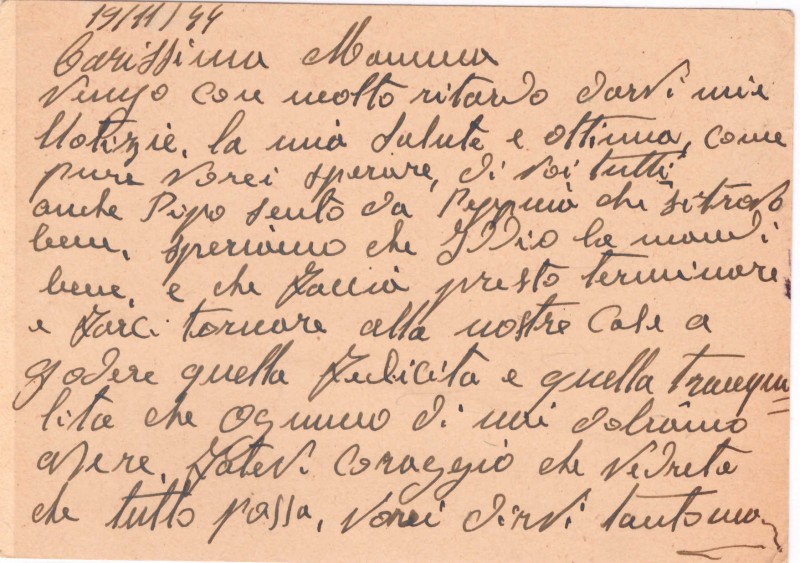 19/11/44
Carissima Mamma
Vengo con molto ritardo darvi mie
Notizie, la mia Salute e ottima, come
pure vorei sperare, di voi tutti
anche Pipo sento da Peppina che si trova
bene, speriamo che Iddio la mandi
bene, e che faccia presto terminare
e farci tornare alla nostre Case a
godere quella felicita e quella tranqui=
lita che ognuno di noi dobiamo
avere. fatevi coraggio che vedrete
che tutto passa, vorei dirvi tanto ma